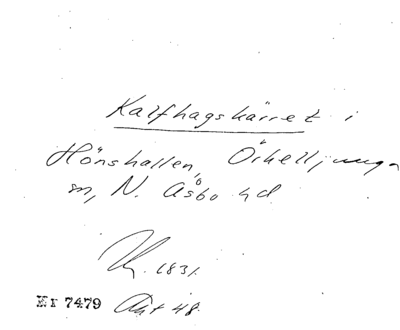 Kalfhagskärret i
Hönshallen, Örkelljunga
sn, N. Åsbo hd
1831.
Nr 7479 Akt 48